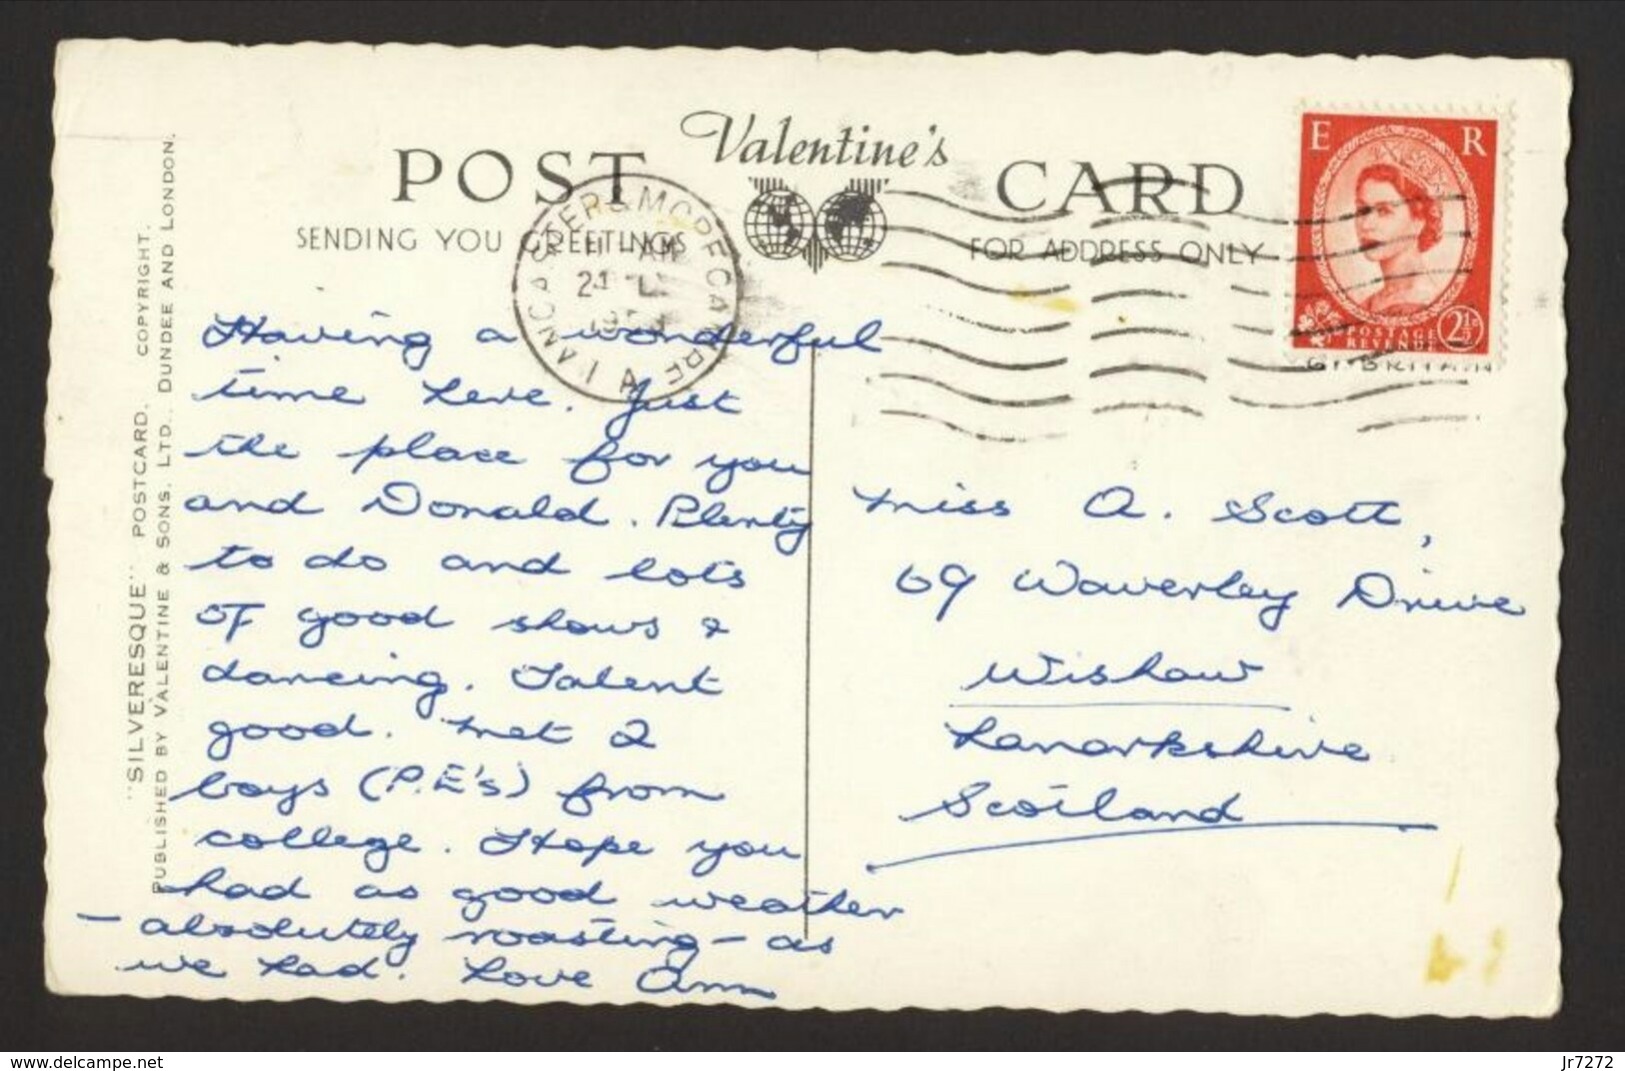 POST Valentine's CARD
SENDING YOU GREETINGS
FOR ADDRESS ONLY
LANCASTER & MORECAMBE
A
E R
POSTAGE
REVENUE
2½D
GT. BRITAIN
"SILVERESQUE" POSTCARD. COPYRIGHT.
PUBLISHED BY VALENTINE & SONS, LTD., DUNDEE AND LONDON.
Having a wonderful
time here. Just
the place for you
and Donald. Plenty
to do and lots
of good shows &
dancing. Talent
good. Met 2
boys (P.E's) from
college. Hope you
had as good weather
- absolutely roasting - as
we had. Love Ann
Miss A. Scott,
69 Waverley Drive
Wishaw
Lanarkshire
Scotland
www.delcampe.net
jr7272